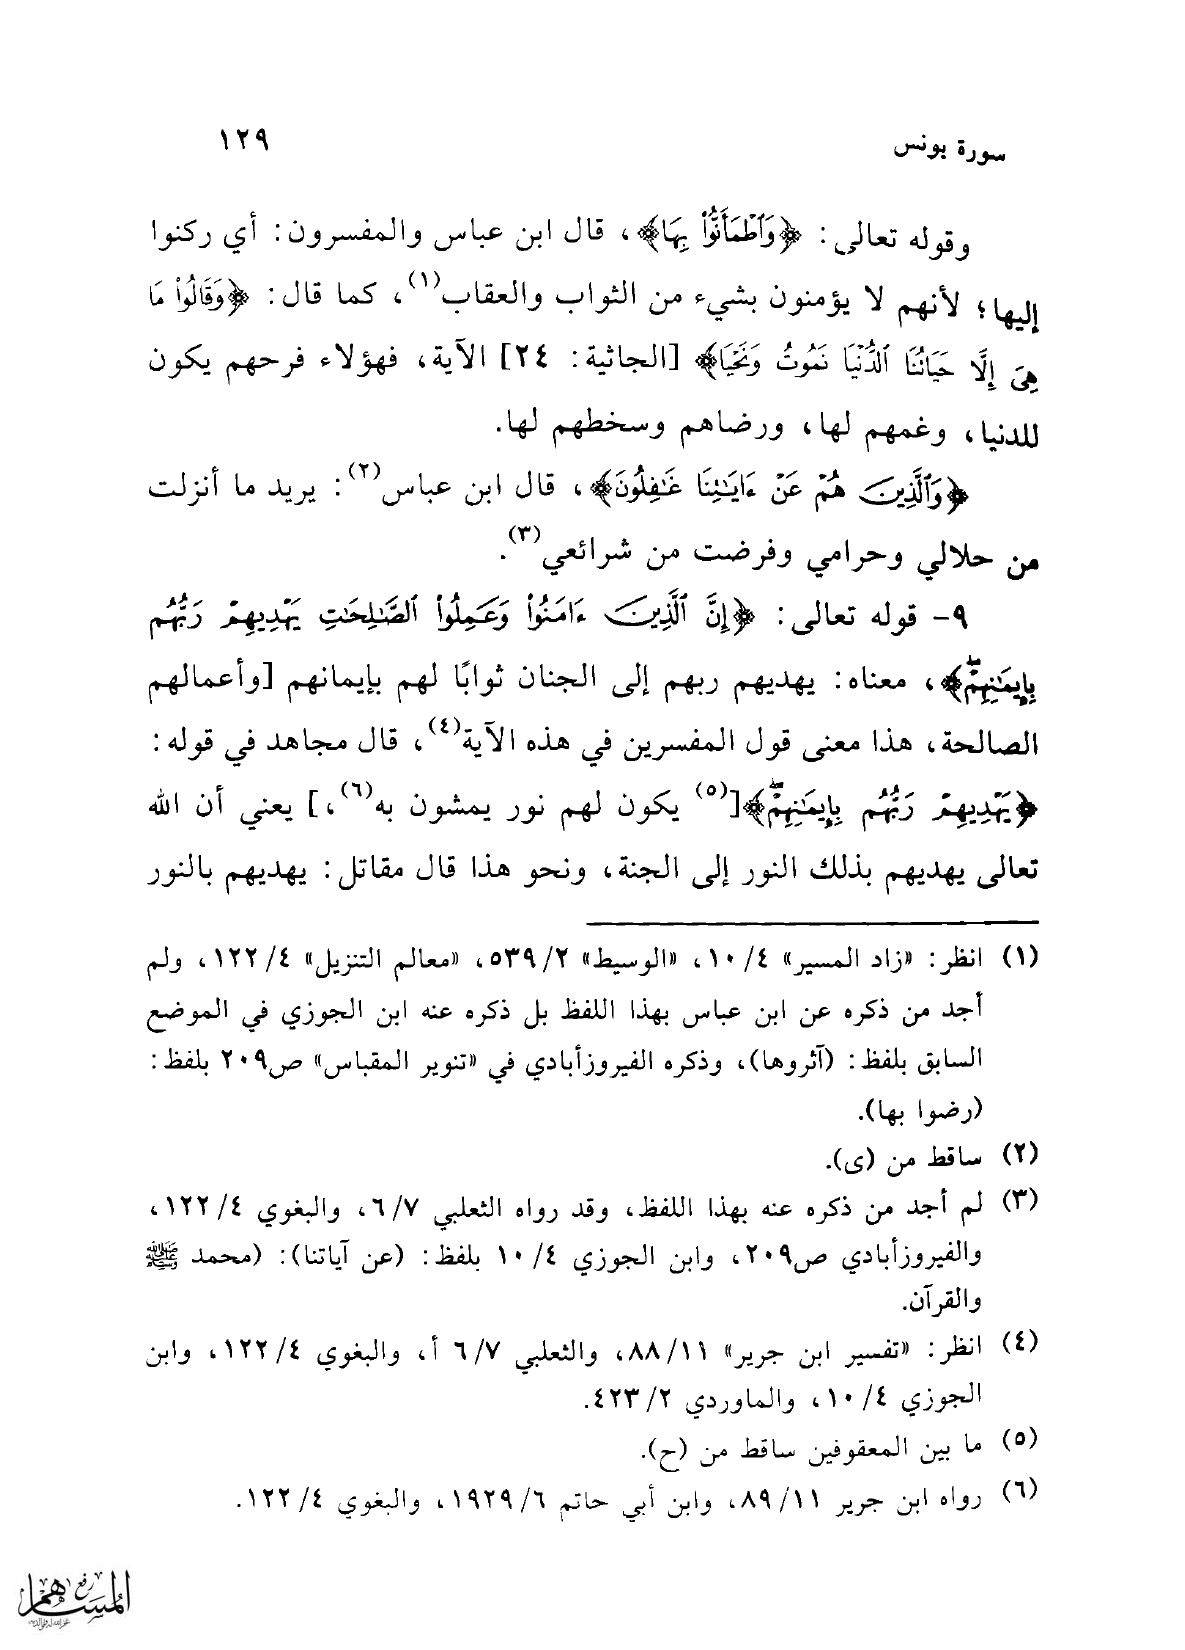 سورة يونس ١٢٩
وقوله تعالى: ﴿وَٱطْمَأَنُّوا۟ بِهَا﴾، قال ابن عباس والمفسرون: أي ركنوا
إليها؛ لأنهم لا يؤمنون بشيء من الثواب والعقاب(١)، كما قال: ﴿وَقَالُوا۟ مَا
هِىَ إِلَّا حَيَاتُنَا ٱلدُّنْيَا نَمُوتُ وَنَحْيَا﴾ [الجاثية: ٢٤] الآية، فهؤلاء فرحهم يكون
للدنيا، وغمهم لها، ورضاهم وسخطهم لها.
﴿وَٱلَّذِينَ هُمْ عَنْ ءَايَٰتِنَا غَٰفِلُونَ﴾، قال ابن عباس(٢): يريد ما أنزلت
من حلالي وحرامي وفرضت من شرائعي(٣).
٩- قوله تعالى: ﴿إِنَّ ٱلَّذِينَ ءَامَنُوا۟ وَعَمِلُوا۟ ٱلصَّٰلِحَٰتِ يَهْدِيهِمْ رَبُّهُم
بِإِيمَٰنِهِمْۖ﴾، معناه: يهديهم ربهم إلى الجنان ثوابًا لهم بإيمانهم [وأعمالهم
الصالحة، هذا معنى قول المفسرين في هذه الآية(٤)، قال مجاهد في قوله:
﴿يَهْدِيهِمْ رَبُّهُم بِإِيمَٰنِهِمْۖ﴾[(٥) يكون لهم نور يمشون به(٦)،] يعني أن الله
تعالى يهديهم بذلك النور إلى الجنة، ونحو هذا قال مقاتل: يهديهم بالنور
(١) انظر: «زاد المسير» ٤/ ١٠، «الوسيط» ٢/ ٥٣٩، «معالم التنزيل» ٤/ ١٢٢، ولم
أجد من ذكره عن ابن عباس بهذا اللفظ بل ذكره عنه ابن الجوزي في الموضع
السابق بلفظ: (آثروها)، وذكره الفيروزأبادي في «تنوير المقباس» ص٢٠٩ بلفظ:
(رضوا بها).
(٢) ساقط من (ى).
(٣) لم أجد من ذكره عنه بهذا اللفظ، وقد رواه الثعلبي ٧/ ٦، والبغوي ٤/ ١٢٢،
والفيروزأبادي ص٢٠٩، وابن الجوزي ٤/ ١٠ بلفظ: (عن آياتنا): (محمد ﷺ
والقرآن.
(٤) انظر: «تفسير ابن جرير» ١١/ ٨٨، والثعلبي ٧/ ٦ أ، والبغوي ٤/ ١٢٢، وابن
الجوزي ٤/ ١٠، والماوردي ٢/ ٤٢٣.
(٥) ما بين المعقوفين ساقط من (ح).
(٦) رواه ابن جرير ١١/ ٨٩، وابن أبي حاتم ٦/ ١٩٢٩، والبغوي ٤/ ١٢٢.